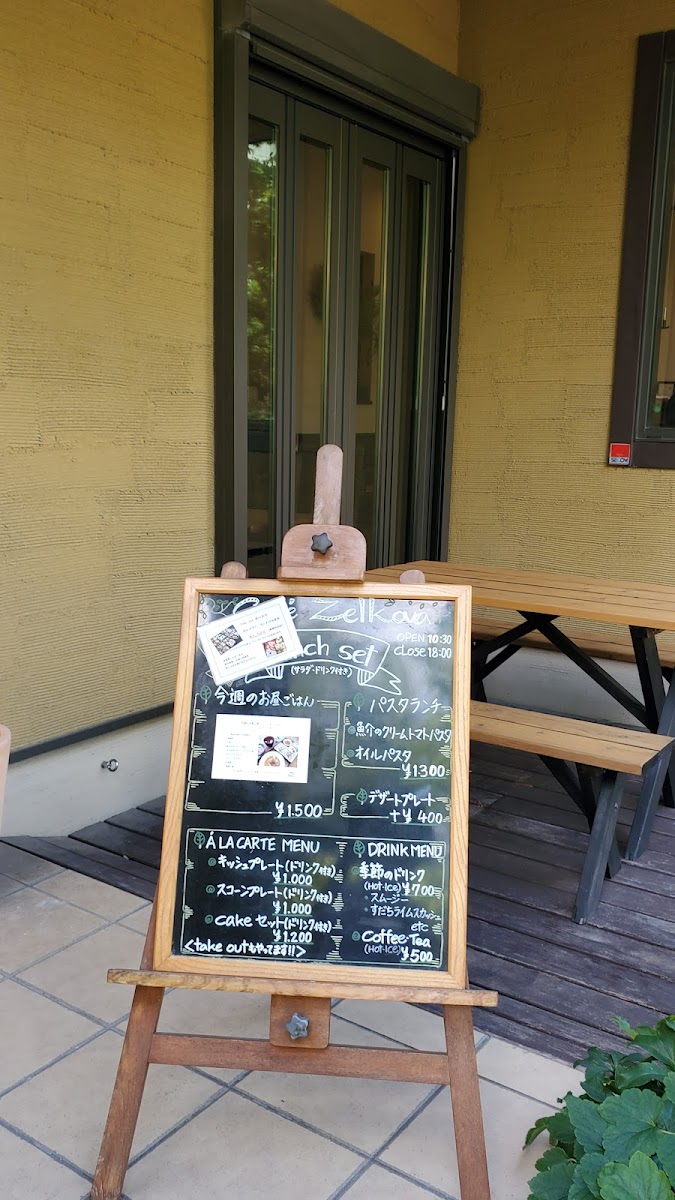 Zelkova
OPEN 10:30
CLOSE 18:00
set
(サラダ・ドリンク付き)
今週のお昼ごはん
¥1.500
パスタランチ
魚介のクリームトマトパスタ
オイルパスタ
¥1300
デザートプレート
+¥400
Á LA CARTE MENU
キッシュプレート(ドリンク付き)
¥1.000
スコーンプレート(ドリンク付き)
¥1.000
cake セット(ドリンク付き)
¥1.200
<take outもやってます!!>
DRINK MENU
季節のドリンク
(Hot・Ice) ¥700
・スムージー
・すだちライムスカッシュ
etc
Coffee・Tea
(Hot・Ice) ¥500